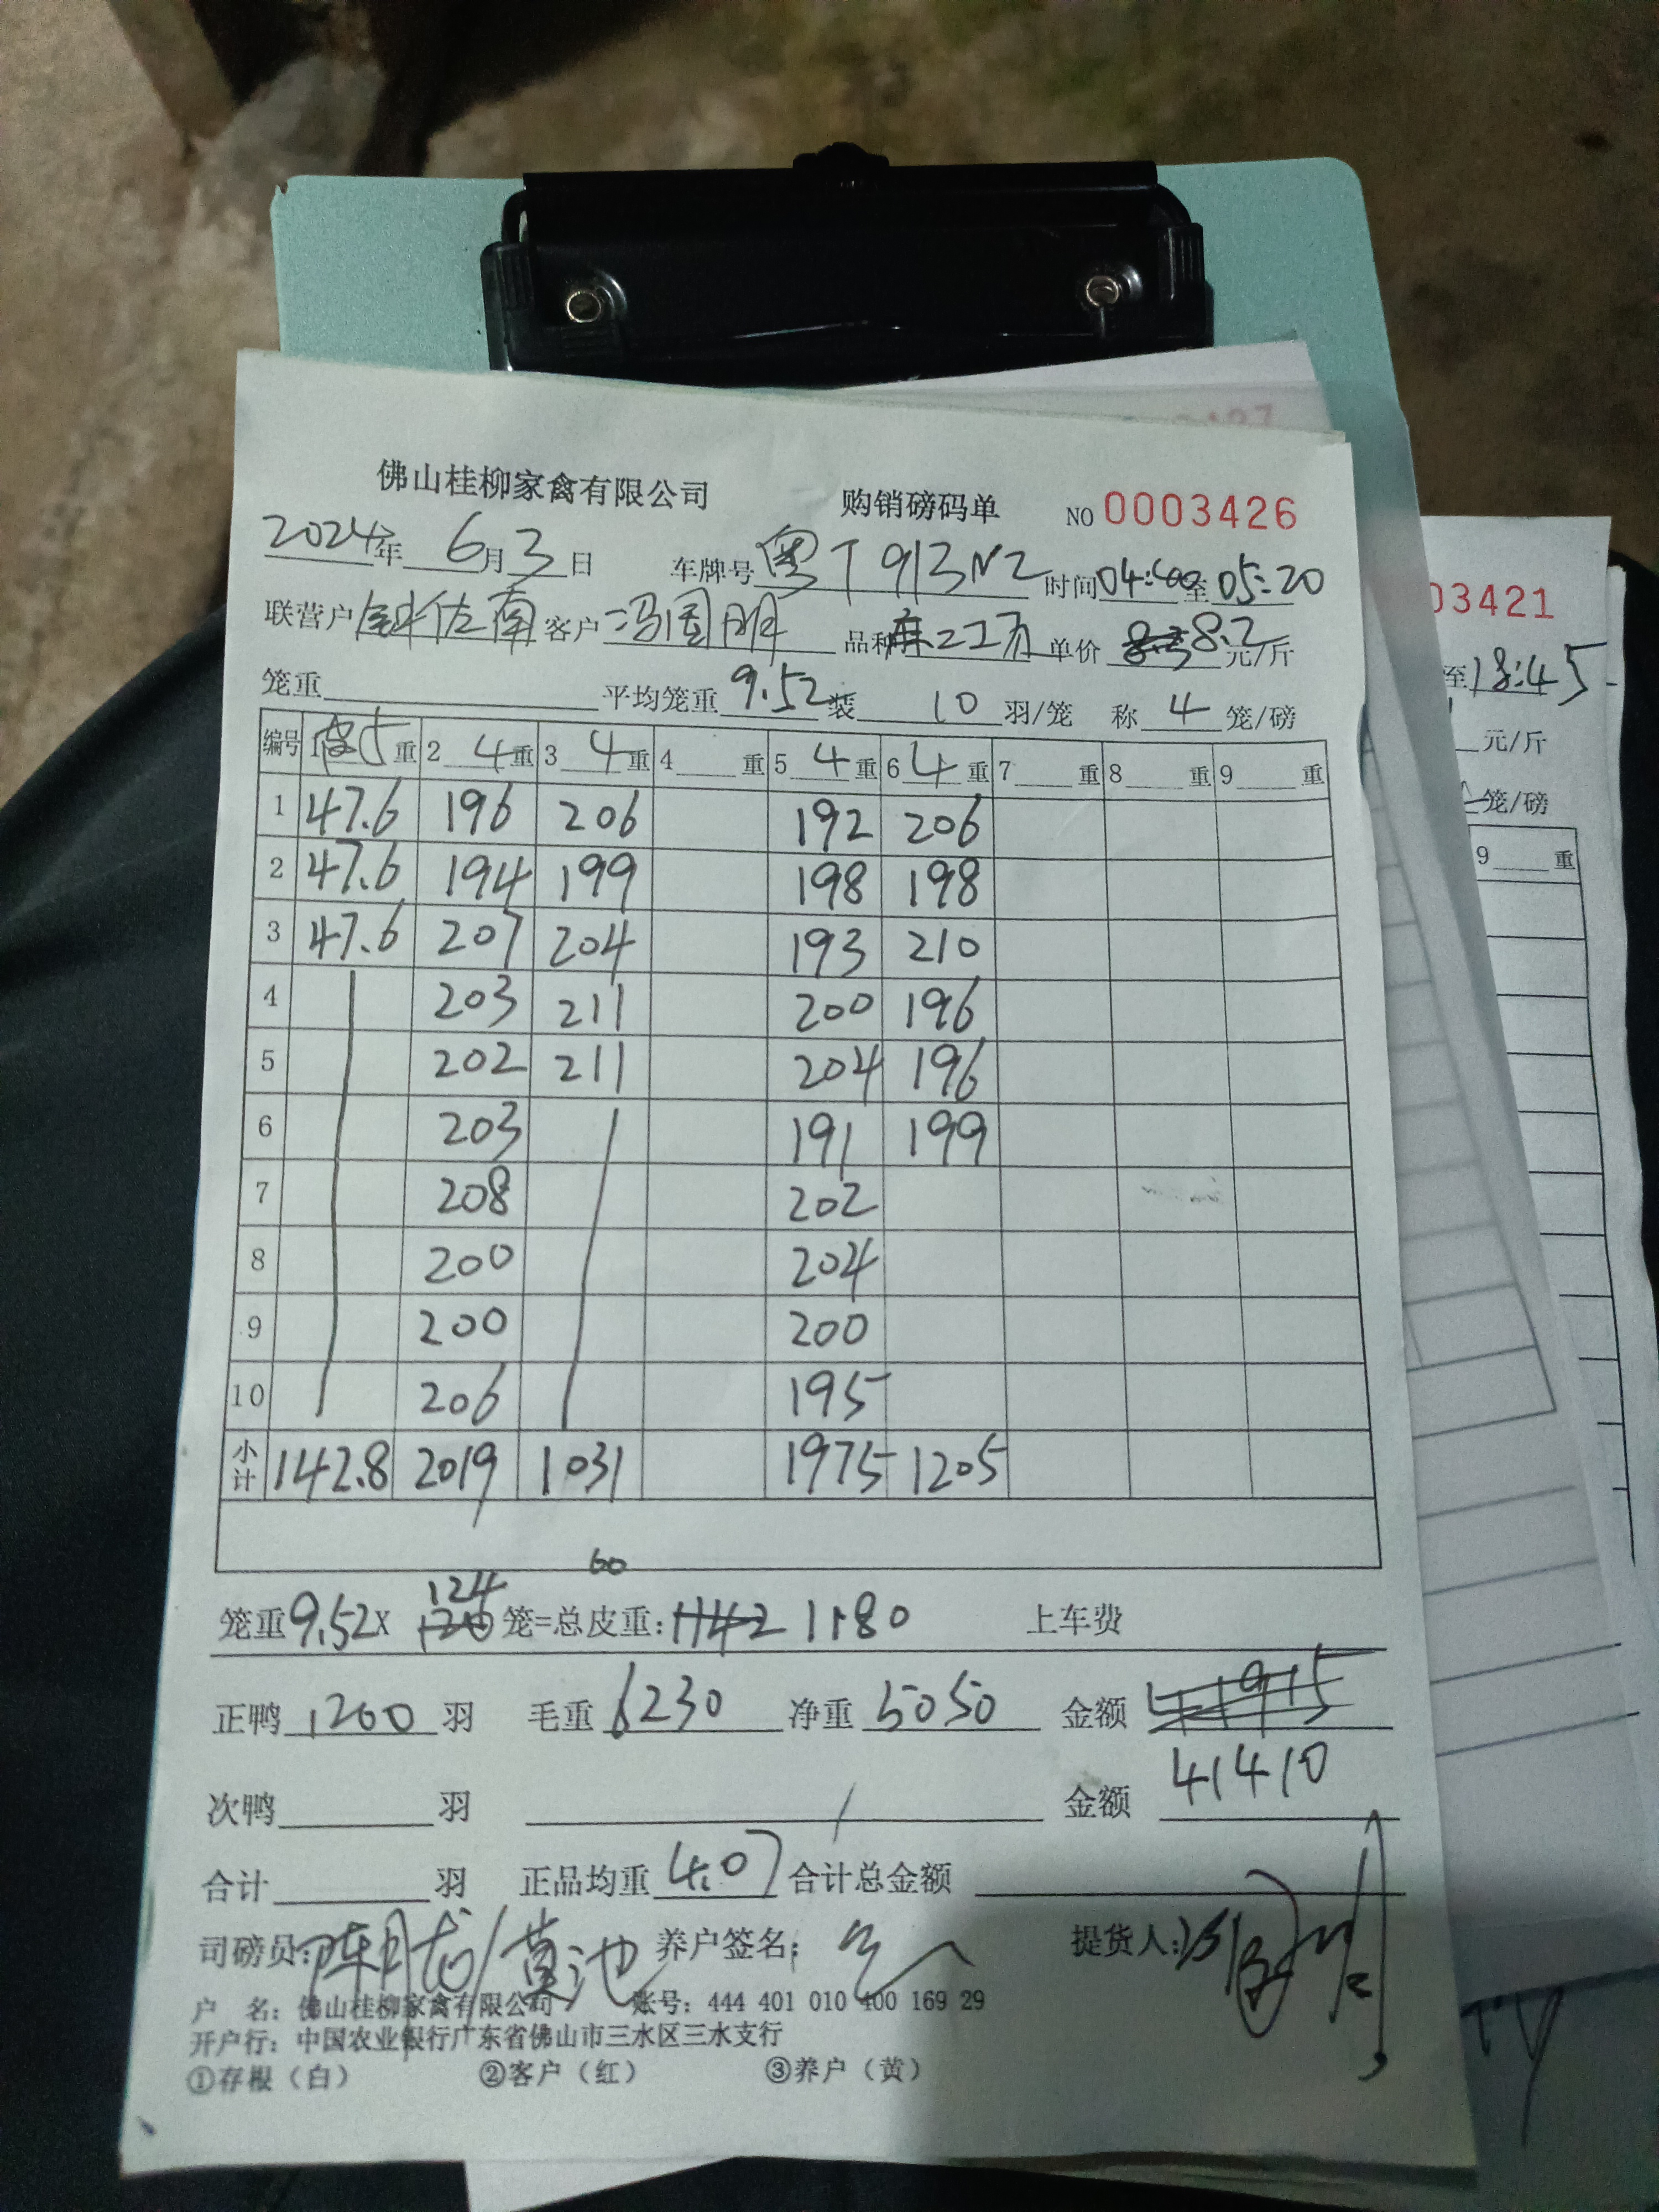 佛山桂柳家禽有限公司 购销磅码单 NO 0003426
2024年 6月3日 车牌号 粤T913N2 时间04:00至05:20
联营户 钟佐南 客户 冯国明 品种 单价 8.2元/斤
笼重 平均笼重 9.52 装 10 羽/笼 称 4 笼/磅
编号 1 皮5重 2 4重 3 4重 4 重 5 4重 6 4重 7 重 8 重 9 重
1 47.6 196 206 192 206
2 47.6 194 199 198 198
3 47.6 207 204 193 210
4 203 211 200 196
5 202 211 204 196
6 203 191 199
7 208 202
8 200 204
9 200 200
10 206 195
小计 142.8 2019 1031 1975 1205
60
124
笼重9.52X 120 笼=总皮重: 1142 1180 上车费
正鸭 1200 羽 毛重 6230 净重 5050 金额 41915
41410
次鸭 羽 金额
合计 羽 正品均重 4.07 合计总金额
司磅员: 养户签名: 提货人:
户 名: 佛山桂柳家禽有限公司 账号: 444 401 010 400 169 29
开户行: 中国农业银行广东省佛山市三水区三水支行
①存根（白） ②客户（红） ③养户（黄）
03421
至18:45
元/斤
笼/磅
9 重